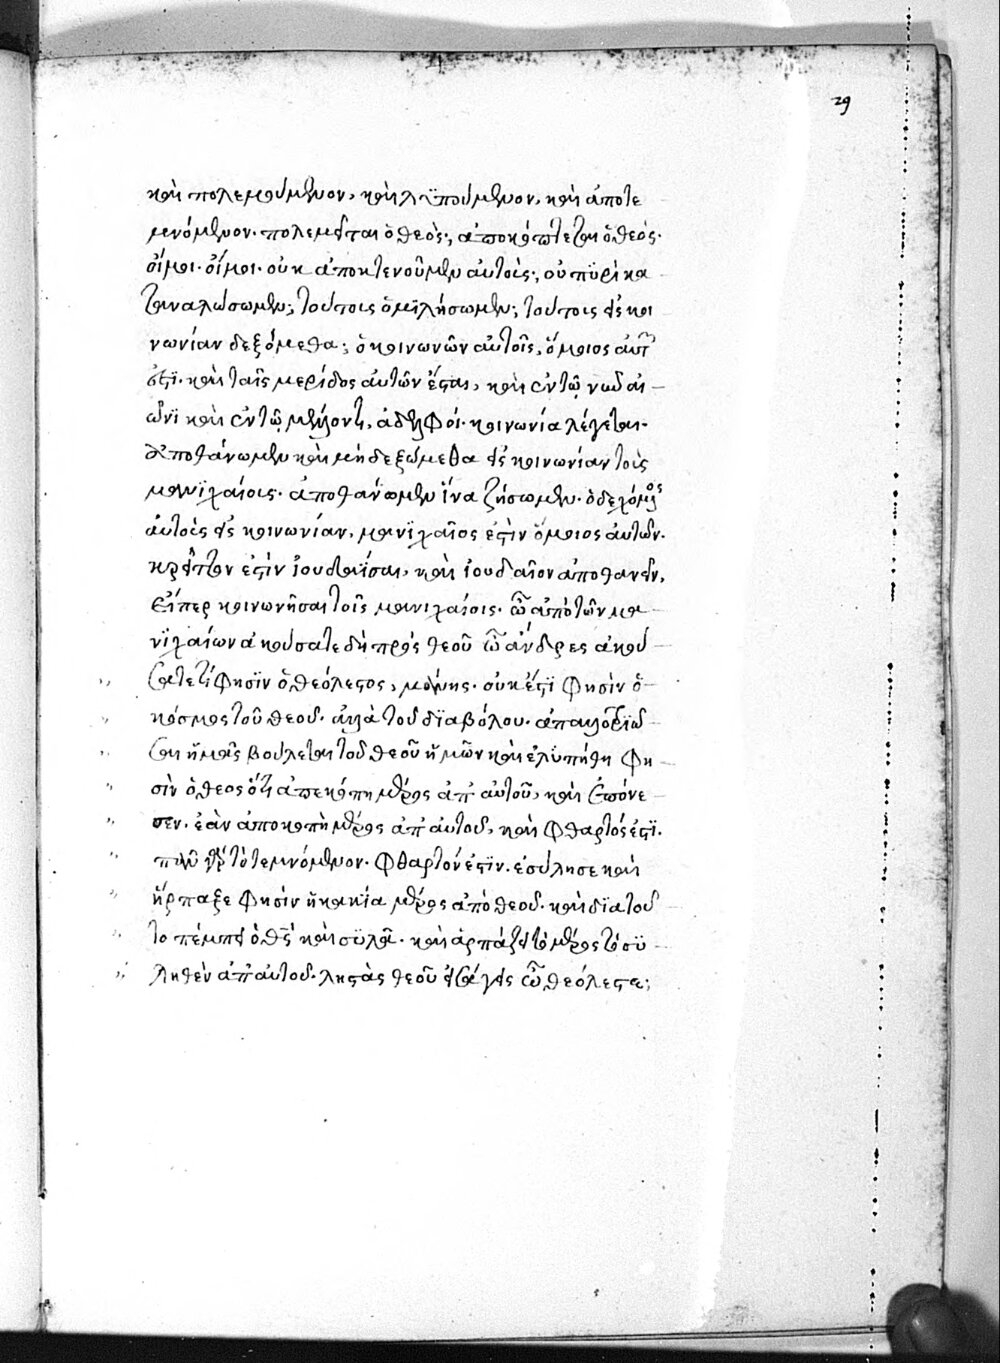 29
καὶ πολεμούμενον, καὶ λϋπούμενον, καὶ ἀποτε
μνόμενον. πολεμεῖται ὁ θεὸς; ἀποκόπτεται ὁ θεός.
οἴμοι. οἴμοι. οὐκ ἀποκτενοῦμεν αὐτοὺς; οὐ πϋρὶ κα
ταναλώσωμεν; τούτοις ὁμϊλήσωμεν; τούτοις εἰς κοι
νωνίαν δεξόμεθα; ὁ κοινωνῶν αὐτοῖς, ὅμοιος αὐτ
ἐστϊ. καὶ ταῖς μερίδος αὐτῶν ἔσται, καὶ ἐν τῷ νῦν αἰ
ῶνϊ καὶ ἐν τῷ μέλλοντι, ἀδελφοί. κοινωνία λέγεται.
ἀποθάνωμεν καὶ μὴ δεξώμεθα εἰς κοινωνίαν τοὺς
μανϊχαίους. ἀποθάνωμεν ἵνα ζήσωμεν. ὁ δεχόμενος
αὐτοὺς εἰς κοινωνίαν, μανϊχαῖος ἐστὶν ὅμοιος αὐτῶν.
κρεῖττον ἐστὶν ἰουδαΐσαι, καὶ ἰουδαῖον ἀποθανεῖν,
εἴπερ κοινωνῆσαι τοῖς μανιχαίοις. ὦ ἀπὸ τῶν μα
νϊχαίων ἀκούσατε δὴ πρὸς θεοῦ ὦ ἄνδρες ἀκού
σατε τί φησϊν ὁ θεόλεστος, μάνης. οὐκ ἔστϊ φησὶν ὁ
κόσμος τοῦ θεοῦ. ἀλλὰ τοῦ δϊαβόλου. ἀπαλλοτρϊῶ
σαι ἡμᾶς βούλεται τοῦ θεοῦ ἡμῶν καὶ ἐλϋπήθη φη
σὶν ὁ θεος ὅτι ἀπεκόπη μέρος ἀπ' αὐτοῦ, καὶ ἐπόνε
σεν. ἐὰν ἀποκοπῇ μέρος ἀπ' αὐτοῦ, καὶ φθαρτός ἐστϊ.
πᾶν γὰρ τὸ τεμνόμενον. φθαρτόν ἐστϊν. ἐσύλησε καὶ
ἥρπαξε φησὶν ἡ κακία μέρος ἀπὸ θεοῦ. καὶ δϊα τοῦ
το πέμπει ὁ θς καὶ σϋλᾶ. καὶ ἁρπάζει τὸ μέρος τὸ σϋ
ληθὲν ἀπ' αὐτοῦ. ληστὰς θεοῦ εἰσάγεις ὦ θεόλεστε;